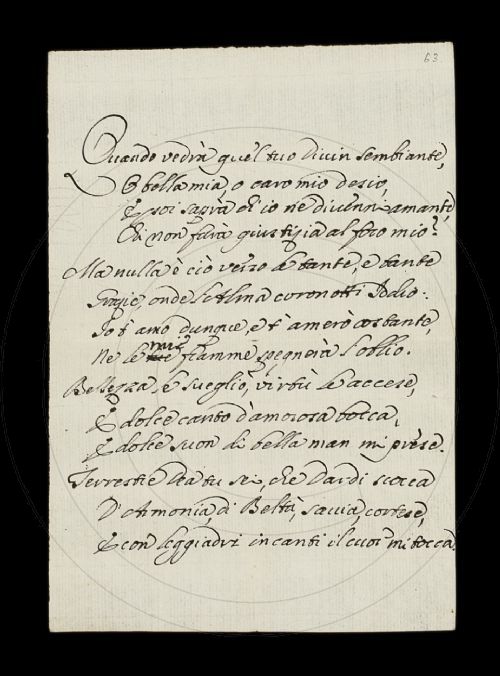 63
Quando vedrà quel tuo Divin sembiante,
O bella mia, o caro mio desio,
E poi saprà ch'io ne divenni amante,
Chi non farà giustizia al foco mio?
Ma nulla è ciò verso le tante, e tante
Grazie, onde l'Alma coronotti Iddio:
Io t'amo dunque, e t'amerò costante,
Ne le mie fiamme spegnerà l'oblio.
Bellezza, è sveglio, virtù le accese,
E dolce canto d'amorosa bocca,
E dolce suon di bella man mi prese.
Terrestre Dea tu sei, che Dardi scocca
D'Armonia, di Beltà, savia, cortese,
E con leggiadri incanti il cuor mi tocca.